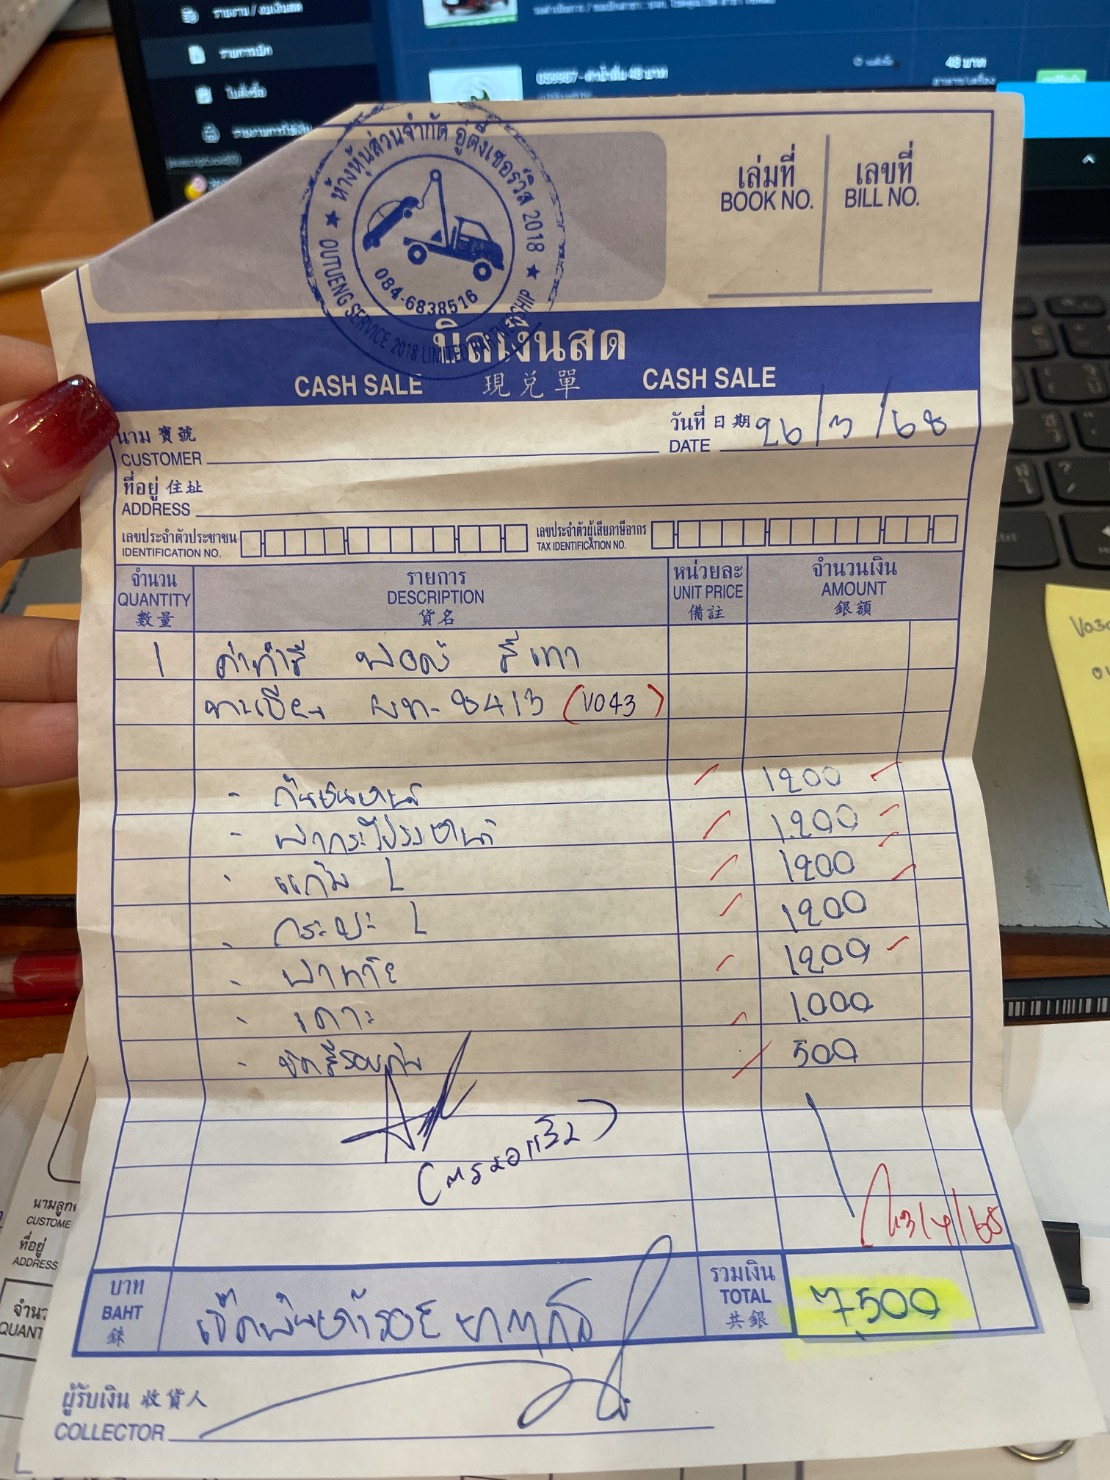 รายการเบิก
ใบสั่งซื้อ
48 บาท
ห้างหุ้นส่วนจำกัด อู่ตึ๋งเซอร์วิส 2018
084-6838516
OUTUENG SERVICE 2018 LIMITED PARTNERSHIP
เล่มที่ เลขที่
BOOK NO. BILL NO.
บิลเงินสด
CASH SALE 現兌單 CASH SALE
นาม 寶號
CUSTOMER
วันที่ 日期 26/3/68
DATE
ที่อยู่ 住址
ADDRESS
เลขประจำตัวประชาชน เลขประจำตัวผู้เสียภาษีอากร
IDENTIFICATION NO. TAX IDENTIFICATION NO.
จำนวน รายการ หน่วยละ จำนวนเงิน
QUANTITY DESCRIPTION UNIT PRICE AMOUNT
數量 貨名 備註 銀額
1 ค่าทำสี ฟอร์ด สีเทา
ทะเบียน ผท-8413 (V043)
- กันชนหน้า 1200
- ฝากระโปรงหน้า 1200
- แก้ม L 1200
- กระบะ L 1200
- ฝาท้าย 1200
- เคาะ 1,000
- ขัดสีรอบคัน 500
3/4/68
บาท รวมเงิน
BAHT เจ็ดพันห้าร้อยบาทถ้วน TOTAL 7,500
銖 共銀
ผู้รับเงิน 收貨人
COLLECTOR
นามลูกค้า
CUSTOME
ที่อยู่
ADDRESS
จำนว
QUANT